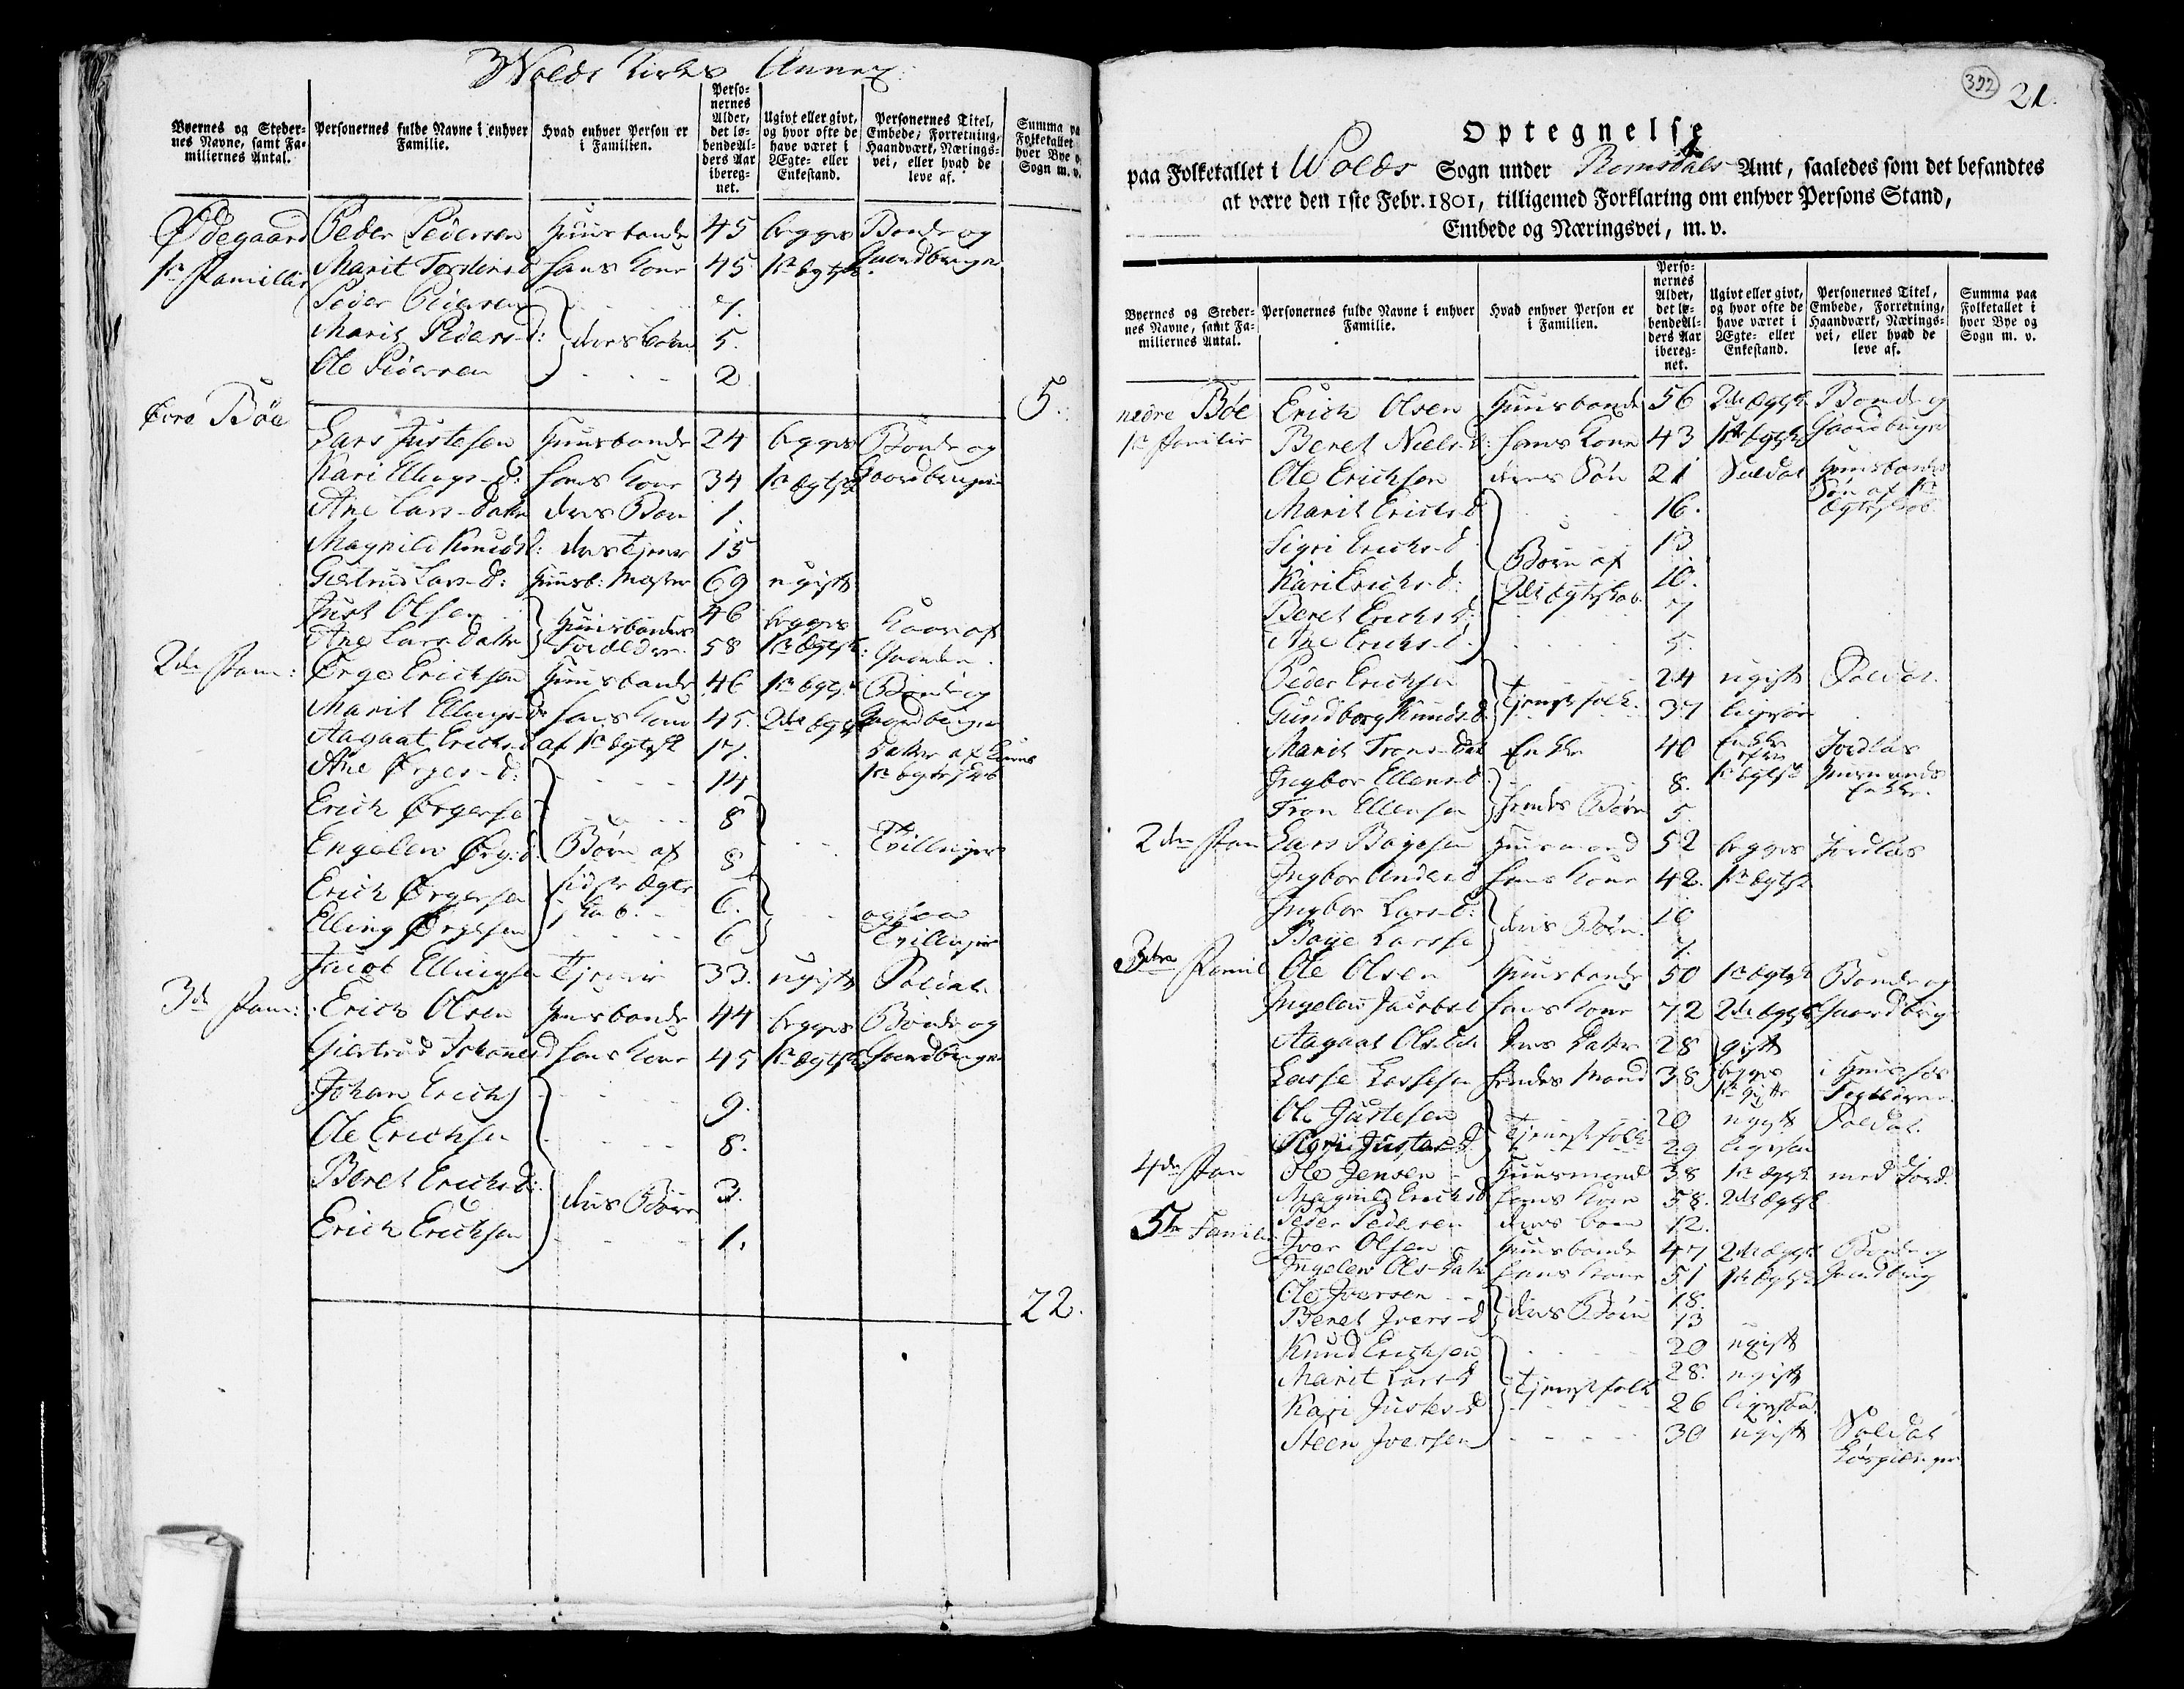 Wolds Kirkes Annex
Byernes og Steder-
nes Navne, samt Fa-
miliernes Antal.
Personernes fulde Navne i enhver
Familie.
Hvad enhver Person er
i Familien.
Perso-
nernes
Alder,
det lø-
bende Al-
ders Aar
ibereg-
net.
Ugivt eller givt,
og hvor ofte de
have været i
Ægte- eller
Enkestand.
Personernes Titel,
Embede, Forretning,
Haandværk, Nærings-
vei, eller hvad de
leve af.
Summa pa
Folketallet
hver Bye o
Sogn m. v.
Ødegaard Peder Pedersen Huusbonde 45 begges Bonde og
1te Familie Marit Tostensd hans Kone 45 1te Egtsk. Gaardbruger
Peder Pedersen 7.
Marit Pedersd: deres børn 5.
Ole Pedersen 2
5.
øvre Bøe
Lars Justesen Huusbonde 24 begges Bonde og
Kari Ellings-d: hans Kone 34 1te Egtsk Gaardbruger
Ane Lars-Datter deres Barn 1.
Magnild Knudsd: deres tjener 15
Giertrud Lars-d: Huusb: Moster 69 ugift
Just Olsen Huusbondes 46 begges Kaar af
Ane Lars Datter Forældre 58 1te Egtsk: Gaarden.
2den Fam: Ørge Erichsen Huusbonde 46 1te Egtsk Bonde og
Marit Ellingsd hans Kone 45. 2det Egtsk Gaardbruger
Aagaat Erichs-d af 1te Egtsk 17. Datter af Konens
Ane Ørges-d: 14 1te Egteskab
Erich Ørgesen 8
Engelev Ørg:d Børn af 8 Tvillinger
Erich Ørgesen sidste Egte 6.
Elling Ørgesen skab. 6 ogsaa Tvillinger
Jacob Ellingsen Tjener 33. ugift Soldat
3de Fam: Erich Olsen Huusbonde 44 begges Bonde og
Giertrud Johannesd hans Kone 45 1te Egtsk Gaardbruger
Johan Erichs 9.
Ole Erichsen 8.
Beret Erichsd: deres Børn 3.
Erich Erichsen 1.
22.
322 21.
Optegnelse
paa Folketallet i Wolds Sogn under Romsdals Amt, saaledes som det befandtes
at være den 1ste Febr. 1801, tilligemed Forklaring om enhver Persons Stand,
Embede og Næringsvei, m. v.
Byernes og Steder-
nes Navne, samt Fa-
miliernes Antal.
Personernes fulde Navne i enhver
Familie.
Hvad enhver Person er
i Familien.
Perso-
nernes
Alder,
det lø-
bende Al-
ders Aar
ibereg-
net.
Ugivt eller givt,
og hvor ofte de
have været i
Ægte- eller
Enkestand.
Personernes Titel,
Embede, Forretning,
Haandværk, Nærings-
vei, eller hvad de
leve af.
Summa paa
Folketallet i
hver Bye og
Sogn m. v.
nedre Bøe Erich Olsen Huusbonde 56 2det Egtsk Bonde og
1te Familie Beret Niels-d: hans Kone 43 1te Egtsk Gaardbruger
Ole Erichsen deres Søn 21 Soldat Huusbondes
Søn af 1te
Egteskab
Marit Erichs-d 16.
Sigri Erichs-d 13
Kari Erichs-d: Børn af 10.
Beret Erichs-d: 2det Egteskab 7
Ane Erichs-d. 5.
Peder Erichsen Tjenestfolk 24 ugift Soldat.
Gundborg Knuds-d. 37 ligesaa
Marit Trons-Dat Enke 40 Enke efter Jordløs
1te Egtsk Huusmands
Enke.
Ingbor Ellens-d. 8.
Tron Ellensen hendes Børn 5.
2den Fam Lars Bøyesen Huusmand 52 begges Jordløs
Ingbor Anders-d hans Kone 42. 1te Egtsk
Ingbor Lars-d: deres Børn. 10
Bøye Larsse 7.
3die Famil Ole Olsen Huusbonde 50 1te Egtsk Bonde og
Ingelev Jacobs-d hans Kone 72 2det Egtsk Gaardbrug
Aagaat Ols-dat deres Datter 28 gift
Lasse Lassesen hendes Mand 38 begges i Huus hos
1te gifte
Ole Justesen Tjenestfolk 20 ugift Soldat
Sigri Justes-d. 29 ligesaa
4de Fam Ole Jensen Huusmand 38 1te Egtsk med Jord.
Magnild Erichs-d hans Kone 58. 2det Egtsk
Peder Pedersen deres barn 12.
5te Familie Iver Olsen Huusbonde 47 2det Egtsk Bonde og
Ingelev Ols-Datt hans Kone 51 1te Egtsk Gaardbrug
Ole Iversen deres Børn 18.
Beret Ivers-d 13
Knud Erichsen 20 ugift
Marit Lars-d Tjenestfolk 28. ugift
Kari Justes-d 26 ligesaa
Steen Iversen 30 ugift Soldat